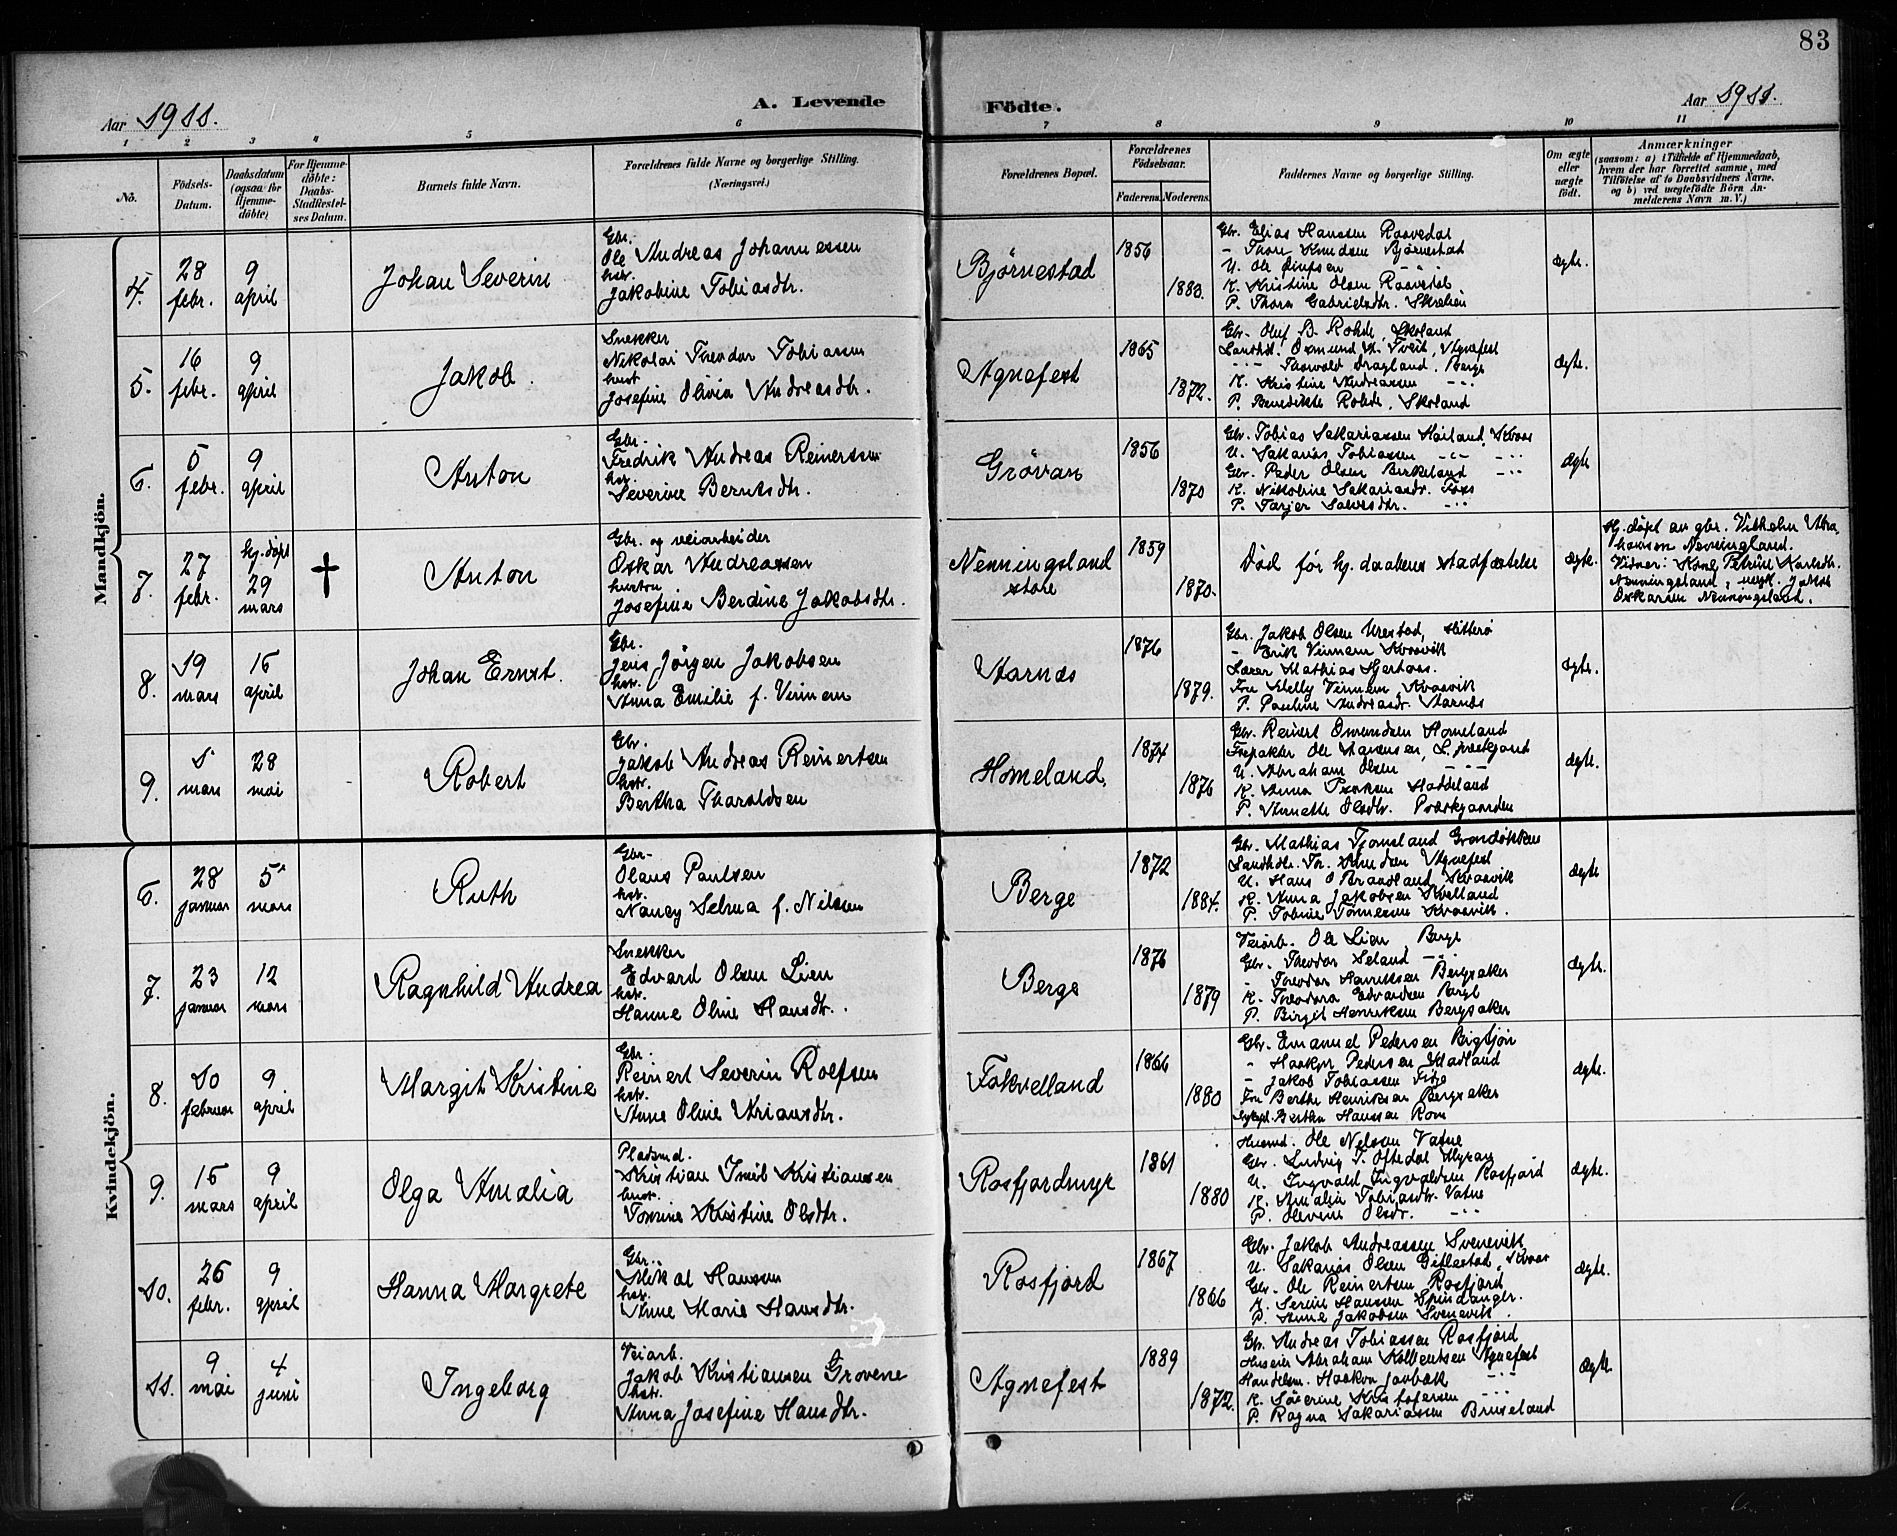 83
Aar 1911.
A. Levende
Födte.
Aar 1911.
1 2 3 4 5 6 7 8 9 10 11
No.
Födsels-
Datum.
Daabsdatum
(ogsaa for
Hjemme-
döbte)
For Hjemme-
döbte:
Daabs-
Stadfæstel-
ses Datum.
Barnets fulde Navn.
Forældrenes fulde Navne og borgerlige Stilling.
(Næringsvei.)
Forældrenes Bopæl.
Forældrenes
Födselsaar.
Faderens. Moderens.
Faddernes Navne og borgerlige Stilling.
Om ægte
eller
uægte
födt.
Anmærkninger
(saasom: a) i Tilfælde af Hjemmedaab,
hvem der har forrettet samme, med
Tilföielse af to Daabsvidners Navne,
og b) ved uægtefödte Börn An-
melderens Navn m. V.)
Mandkjön.
4.
28
febr.
9
april
Johan Severin
Gbr.
Ole Andreas Johannessen
hstr.
Jakobine Tobiasdtr.
Bjørnestad
1856
1880.
Gbr. Elias Hanssen Raavedal
- Thore Knudsen Bjørnestad
U. Ole
K. Kristine Olsen Raavedal
P. Thora Gabrielsdtr.
ægte.
5.
16
febr.
9
april
Jakob.
Snekker
Nikolai Theodor Tobiassen
hust.
Josefine Olivia Andreasdtr.
Agnefest
1865
1872.
Gbr. Oluf B. Rohde, Skoland
Landhdl. Osmund A. Tveit, Agnefest
- - Thorvald Dragland, Berge
K. Kristine Andreassen - -
P. Benedikte Rohde, Skoland
ægte.
6.
5
febr.
9
april
Anton
Gbr.
Fredrik Andreas Reinertsen
hst.
Severine Berntsdtr.
Grövan
1856
1870
Gbr. Tobias Sakariassen Høiland, Kvaas
U. Sakarias Tobiassen - - -
Gbr. Peder Olsen Birkeland - -
K. Nikoline Sakariasdr. Foss
P. Tarjer Salvesdtr. - -
ægte
7.
27
febr.
hj. döpt
29
mars
†
Anton
Gbr. og veiarbeider
Oskar Andreassen
hustru
Josefine Berdine Jakobsdtr.
Nenningsland
store
1859
1870.
Död før hj. daabens stadfæstelse
ægte.
Hj. døpt av gbr. Vilhelm Abra-
hamsen Nenningland.
Vidner: Kone Petrine Karlsdtr.
Nenningsland, ungk. Jakob
Oskarsen Nenningsland.
8.
19
mars
16
april
Johan Ernst.
Gbr.
Jens Jörgen Jakobsen
hst.
Anna Emilie f. Vinnem
Aarnes
1876
1879.
Gbr. Jakob Olsen Urestad, Hitterø
- Erik Vinnem Kvavik
Lærer Mathias Hjertaas.
Fru Melly Vinnem, Kvavik
P. Pauline Andreasdr. Aarnes
ægte.
9.
1
mars
28
mai
Robert
Gbr.
Jakob Andreas Reinertsen
hstr.
Bertha Tharaldsen
Homeland.
1874
1876
Gbr. Reinert Omundsen Homeland
Forpakter Ole Aanensen, L. præstgaard
U. Abraham Olsen - - -
K. Anna Haddeland
P. Annette Olsdtr. Præstgaarden
ægte.
Kvindekjön.
6.
28
januar
5
mars
Ruth
Gbr.
Olaus Paulsen
hst.
Nancy Selma f. Nilsen
Berge
1872
1884.
Gbr. Mathias Tjomsland
Landhdlr. Agnefest
U. Hans O Brandland Kvavik
K. Anna Jakobsen Kvelland
P. Tobine Tönnesen Kvavik.
ægte
7.
23
januar
12
mars
Ragnhild Andrea
Snekker
Edvard Olsen Lien
hst.
Hanne Oline Hansdtr.
Berge
1876
1879
Veiarb. Ole Lien, Berge
Gbr. Theodor Seland - -
- Theodor Henriksen Bergsaker
K. Theodora Edvardsen Berge
P. Birgit Henriksen Bergsaker
ægte.
8.
10
februar
9
april
Margit Kristine
Gbr.
Reinert Severin Roefsen
hst.
Anne Oline Ariansdtr.
Fokvelland
1866
1880
Gbr. Emanuel Pedersen Bigtjön
- Haakon Pedersen Stadland
- Jakob Tobiassen
Fru Berthe Henriksen Bergsaker
Sykepl. Bertha Hanssen Rom
ægte.
9.
16
mars
9
april
Olga Amalia
Pladsmd.
Kristian Emil Kristiansen
hust.
Tomine Kristine Olsdtr.
Rosfjordmyr
1861
1880
Husmd. Ole Nelson Vatne
Gbr. Ludvig T. Oftedal Myran
U. Ingvald Ingvaldsen Rosfjord
K. Amalia Tobiasdtr. Vatne
P. Olevine Olsdr. - -
ægte.
10.
26
febr.
9
april
Hanna Margrete
Gbr.
Mikal Hansen
hst.
Anne Marie Hansdtr.
Rosfjord
1867
1866
Gbr. Jakob Andreassen Svenevik
U. Sakarias Olsen Gitlestad, Kvaas
Gbr. Ole Reinertsen Rosfjord
K. Serine Hanssen Spindanger.
P. Anne Jakobsen Svenevik.
ægte.
11.
9
mai
4
juni
Ingeborg
Veiarb.
Jakob Kristiansen Grovene
hst.
Anna Josefine Hansdtr.
Agnefest
1889
1872.
Gbr. Andreas Tobiassen Rosfjord
Huseier Abraham Agnefest
Handelsm. Haakon - -
K. Severine Kristofersen - -
P. Ragna Sakariassen Bruseland
ægte